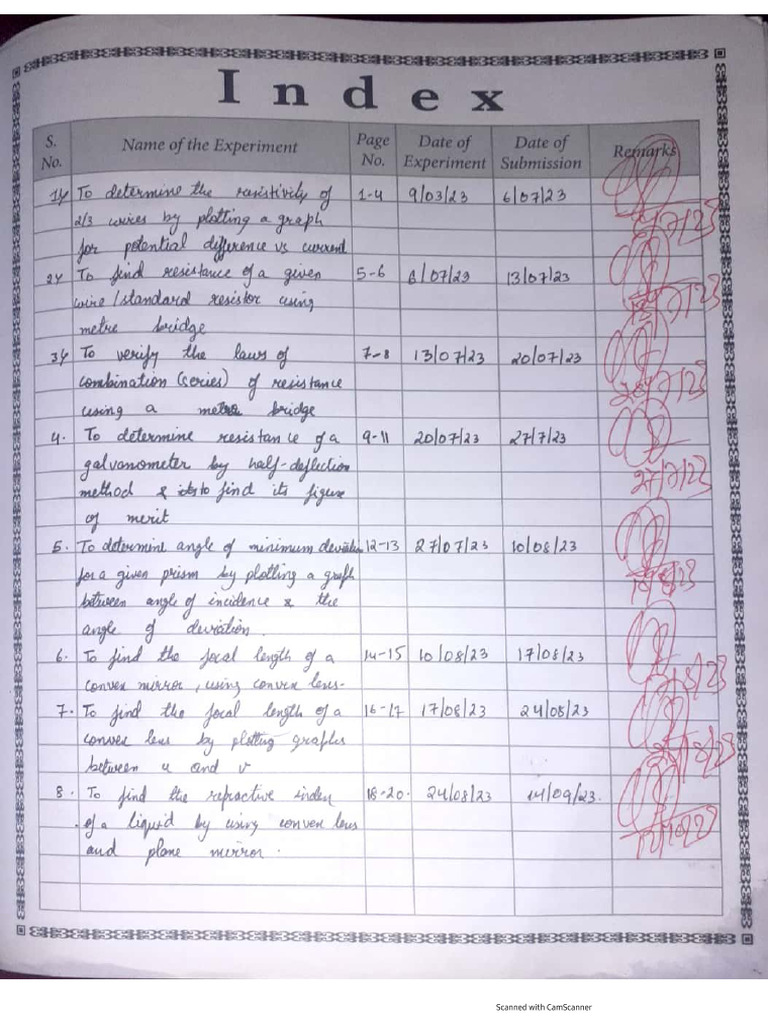 Index
S. No. Name of the Experiment Page No. Date of Experiment Date of Submission Remarks
1) To determine the resistivity of 1-4 9/03/23 6/07/23
2/3 wires by plotting a graph
for potential difference vs current
2) To find resistance of a given 5-6 6/07/23 13/07/23
wire/standard resistor using
metre bridge
3) To verify the laws of 7-8 13/07/23 20/07/23
combination (series) of resistance
using a metre bridge
4. To determine resistance of a 9-11 20/07/23 27/7/23
galvanometer by half-deflection
method & to find its figure 27/7/23
of merit
5. To determine angle of minimum deviation 12-13 27/07/23 10/08/23
for a given prism by plotting a graph
between angle of incidence & the
angle of deviation.
6. To find the focal length of a 14-15 10/08/23 17/08/23
convex mirror, using convex lens-
7. To find the focal length of a 16-17 17/08/23 24/08/23
convex lens by plotting graphs
between u and v
8. To find the refractive index 18-20. 24/08/23 14/09/23.
of a liquid by using convex lens
and plane mirror.
Scanned with CamScanner